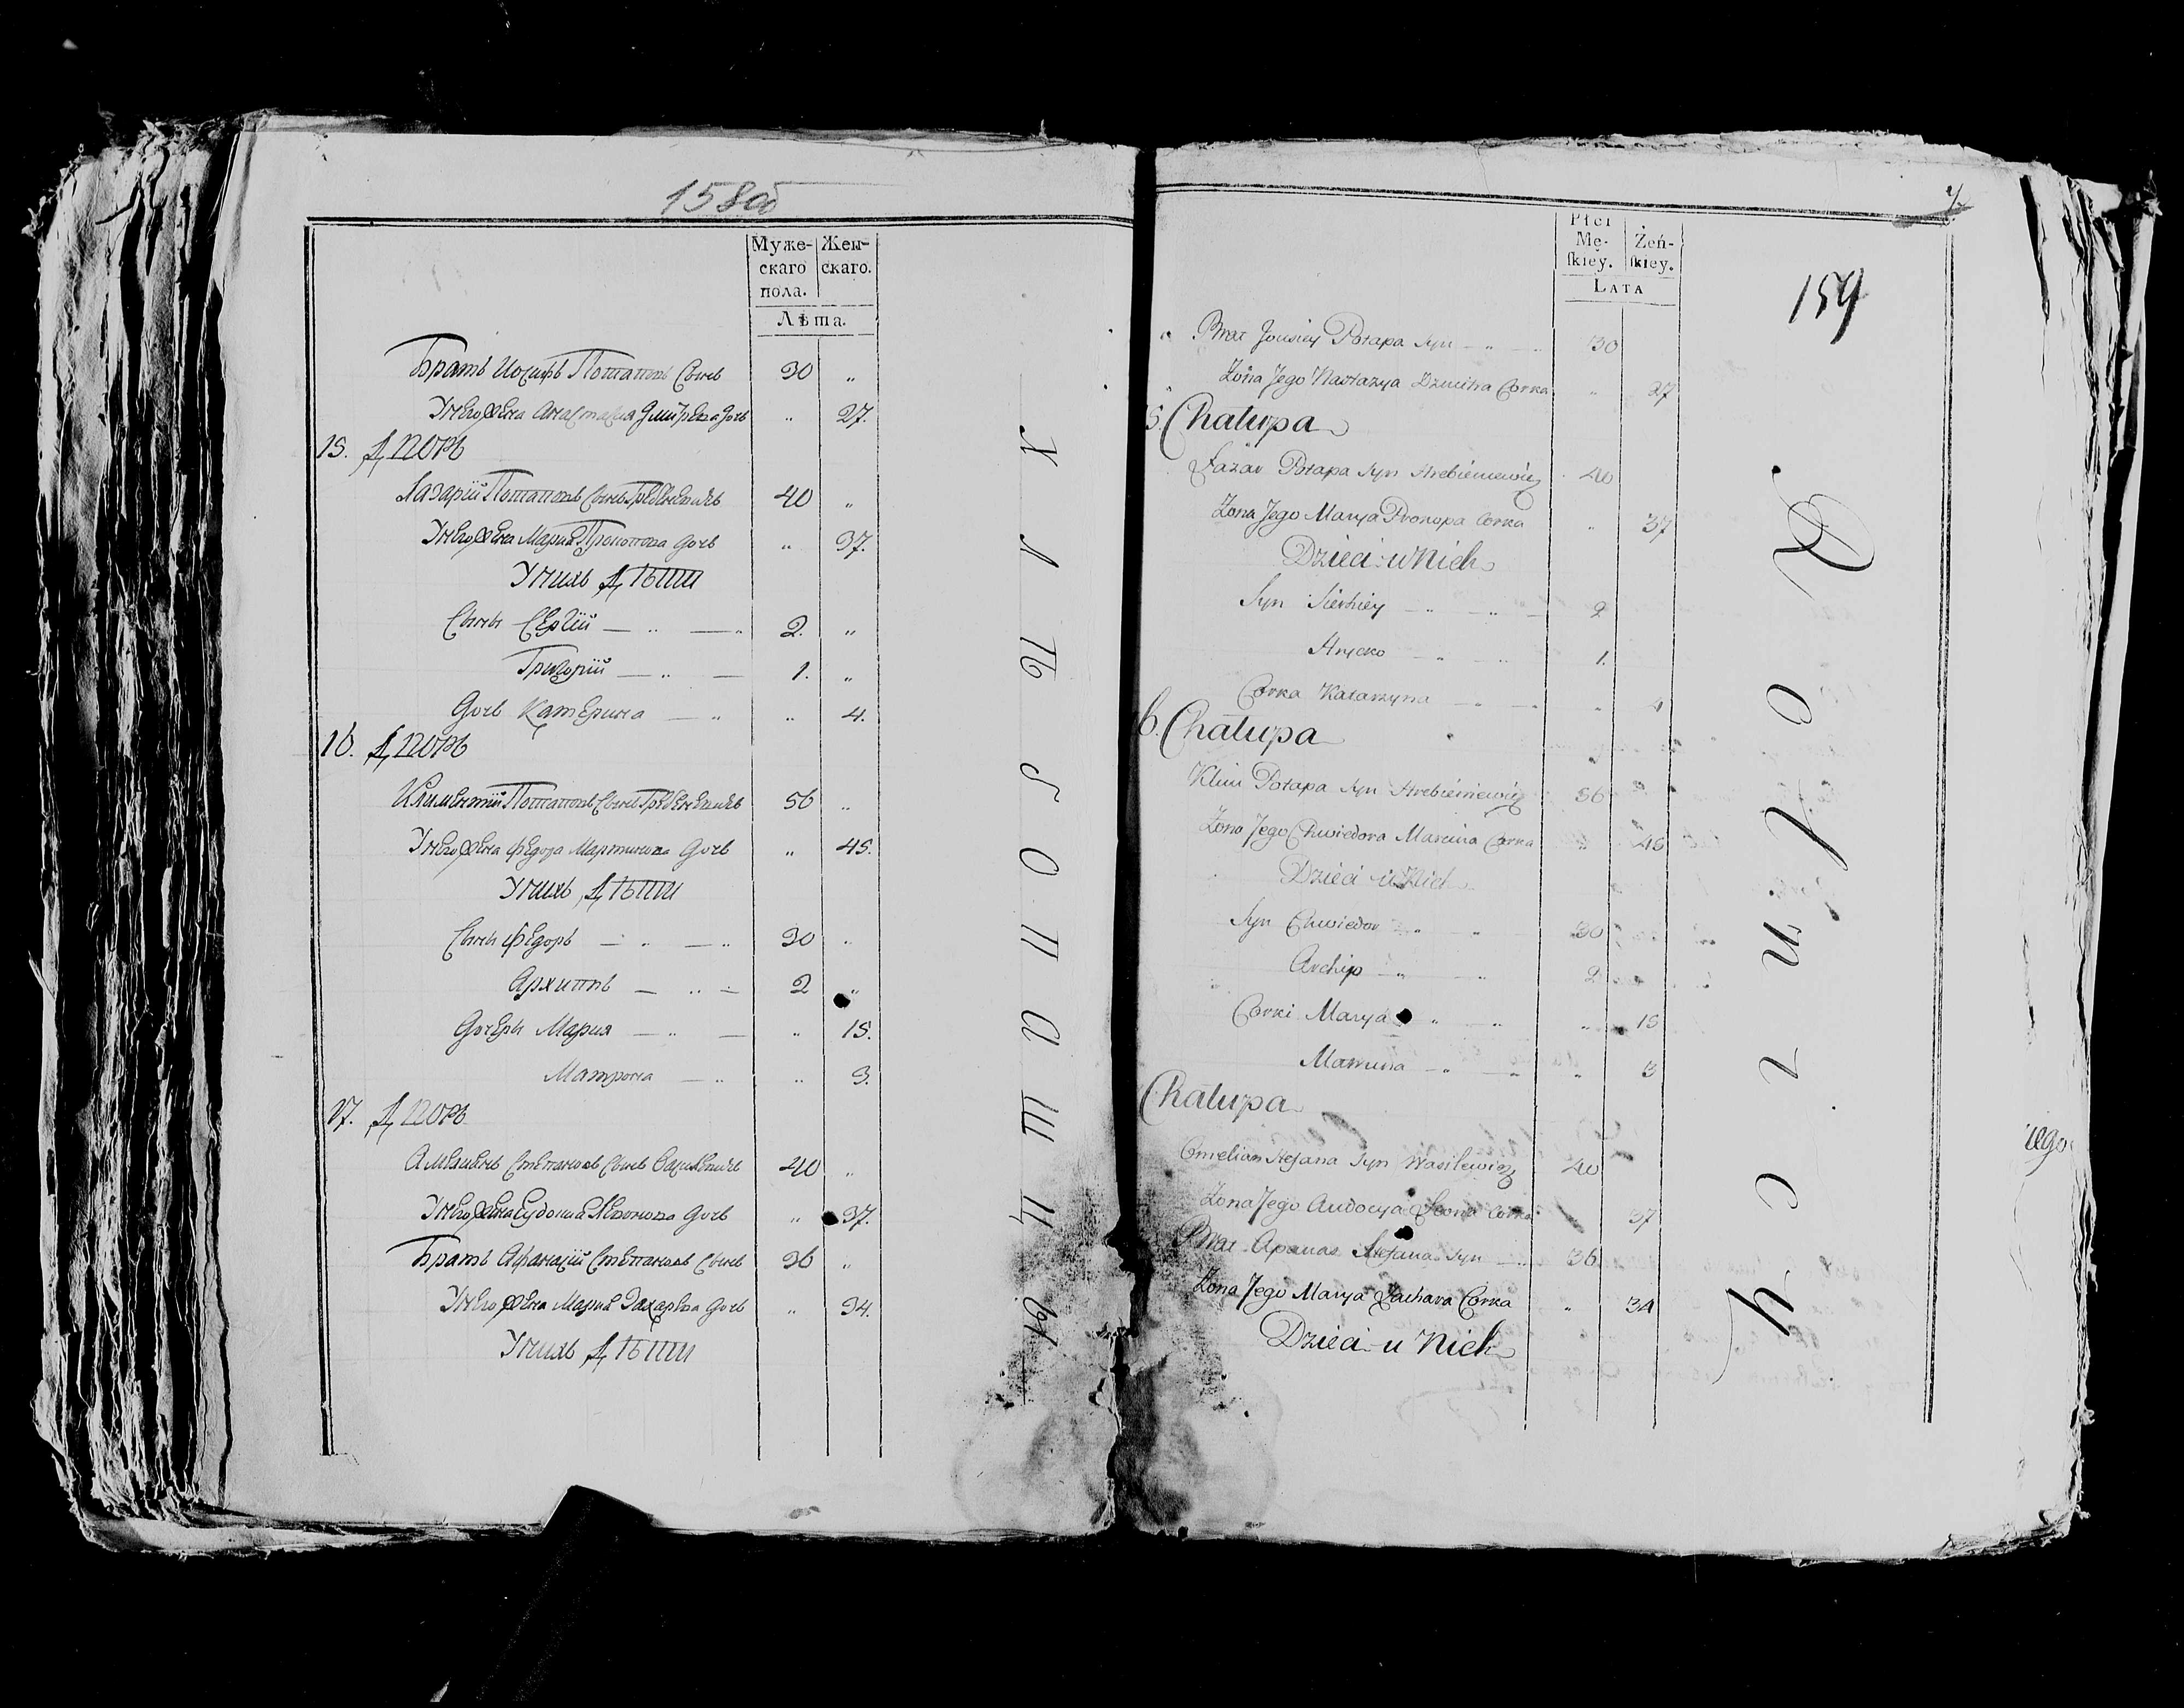 158об
Муже- Жен-
скаго скаго.
пола.
Лѣта.
Братъ Иосифъ Потаповъ Сынъ 30 „
У него жена Анастасия Дмитрева дочь „ 27.
15. ДВОРЪ
Лазарій Потаповъ Сынъ Гребеневичъ 40 „
У него жена Мария Прокопова дочь „ 37.
У нихъ ДѢТИ
Сыны Сергій — „ — 2. „
Григорій — „ — 1. „
Дочь Катерина — „ „ 4.
16. ДВОРЪ
Климентій Потаповъ Сынъ Гребеневичъ 56 „
У него жена Федора Мартинова дочь „ 45.
У нихъ ДѢТИ
Сыны Федоръ — „ — „ 30 „
Архипъ — „ — 2 „
Дочери Мария — „ — „ 15.
Матрона — „ „ 3.
17. ДВОРЪ
Амельянъ Степановъ Сынъ Василевичъ 40 „
У него жена Евдокия Леонова дочь „ 37.
Братъ Афанасій Степановъ Сынъ 36 „
У него жена Мария Захарева дочь „ 34.
У нихъ ДѢТИ
ХЛѢБОПАШЦЫ
Płci
Mę- Żeń-
ſkiey. ſkiey.
LATA
159
Brat Jousiey Potapa Syn — „ — „ 30
Żona Jego Nastazya Dzmitra Corka „ 27
5. Chałupa
Łazar Potapa Syn Hrebieniewicz 40
Żona Jego Marya Prokopa Corka „ 37
Dzieci u Nich
Syn Sierhiey — „ — „ — 2
Hryćko — „ — „ 1.
Corka Katarzyna — „ — „ 4
6. Chałupa
Klim Potapa Syn Hrebieniewicz 56
Żona Jego Chwiedora Marcina Corka „ 45
Dzieci u Nich
Syn Chwiedor — „ „ 30
Archip — „ — „ 2
Corki Marya „ — „ „ 15
Matruna — „ — „ „ 3
Chałupa
Omelian Stefana Syn Wasilewicz 40
Żona Jego Audocya Leona Corka 37
Brat Apanas Stefana Syn — 36
Żona Jego Marya Zachara Corka „ 34
Dzieci u Nich
Rolnicy
iego